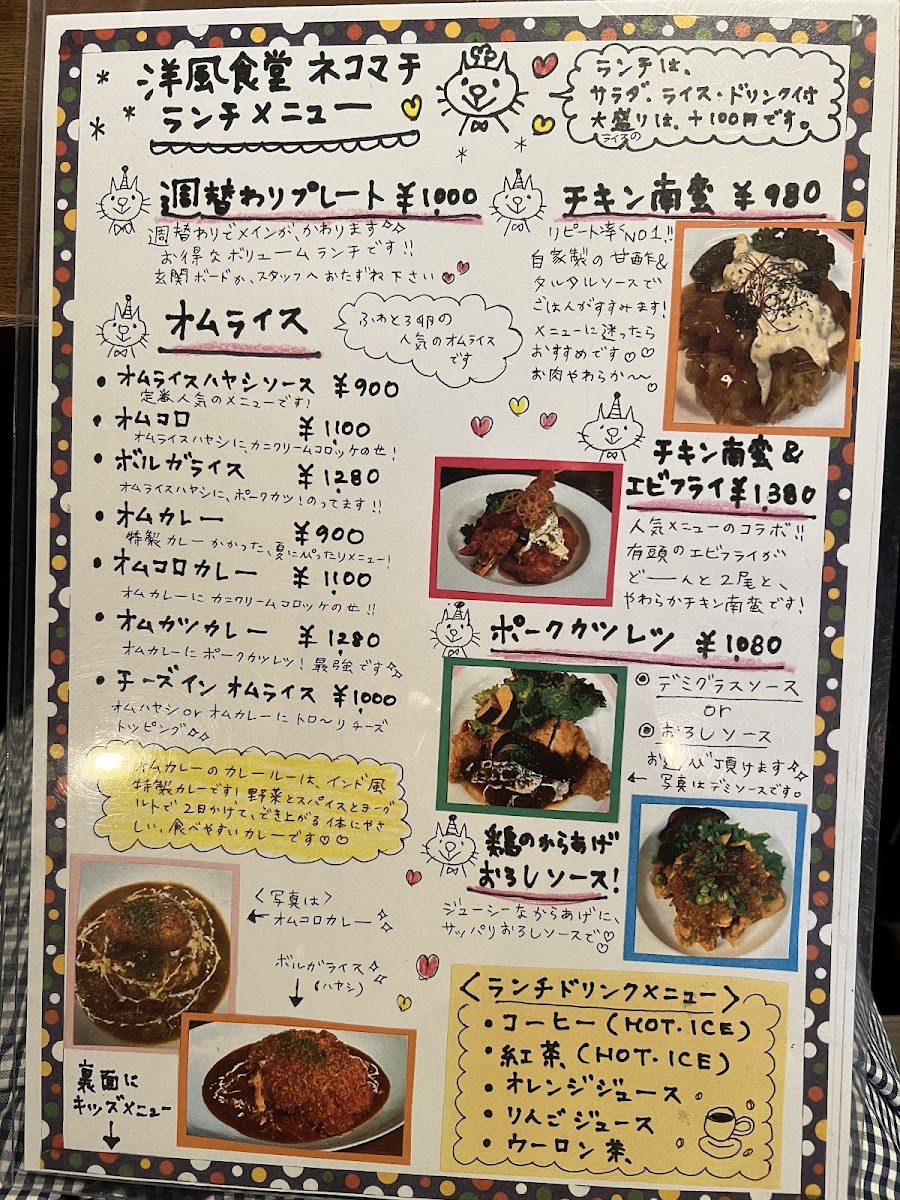 洋風食堂 ネコマチ
ランチメニュー
ランチは、
サラダ、ライス・ドリンク付
大盛りは、+100円です。
ライスの
週替わりプレート ¥1,000
週替わりでメインが、かわります
お得なボリュームランチです!!
玄関ボードか、スタッフへおたずね下さい
オムライス
ふわとろ卵の
人気のオムライス
です
・オムライスハヤシソース ¥900
定番人気のメニューです!
・オムコロ ¥1,100
オムライスハヤシに、カニクリームコロッケのせ!
・ボルガライス ¥1,280
オムライスハヤシに、ポークカツ!のってます!!
・オムカレー ¥900
特製カレーかかった、夏にぴったりメニュー!
・オムコロカレー ¥1,100
オムカレーにカニクリームコロッケのせ!!
・オムカツカレー ¥1,280
オムカレーにポークカツレツ!最強です
・チーズイン オムライス ¥1,000
オムハヤシ or オムカレーにトロ〜リチーズ
トッピング
オムカレーのカレールーは、インド風
特製カレーです!野菜とスパイスとヨーグ
ルトで2日かけて、でき上がる体にやさ
しい、食べやすいカレーです♡♡
<写真は>
← オムコロカレー
ボルガライス
(ハヤシ)
↓
裏面に
キッズメニュー
↓
チキン南蛮 ¥980
リピート率NO1!!
自家製の甘酢&
タルタルソースで
ごはんがすすみます!
メニューに迷ったら
おすすめです♡♡
お肉やわらか〜♡
チキン南蛮&
エビフライ ¥1,380
人気メニューのコラボ!!
有頭のエビフライが
どーんと2尾と、
やわらかチキン南蛮です!
ポークカツレツ ¥1,080
◎デミグラスソース
or
◎おろしソース
お選び頂けます
← 写真はデミソースです。
鶏のからあげ
おろしソース!
ジューシーなからあげに、
サッパリおろしソースで♡♡
<ランチドリンクメニュー>
・コーヒー(HOT・ICE)
・紅茶(HOT・ICE)
・オレンジジュース
・りんごジュース
・ウーロン茶